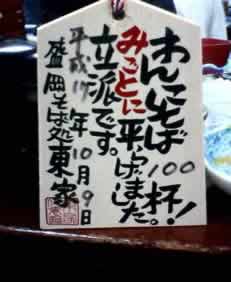 わんこそば100杯!
みごとに平らげました。
立派です。
平成17年10月9日
盛岡そば処 東家